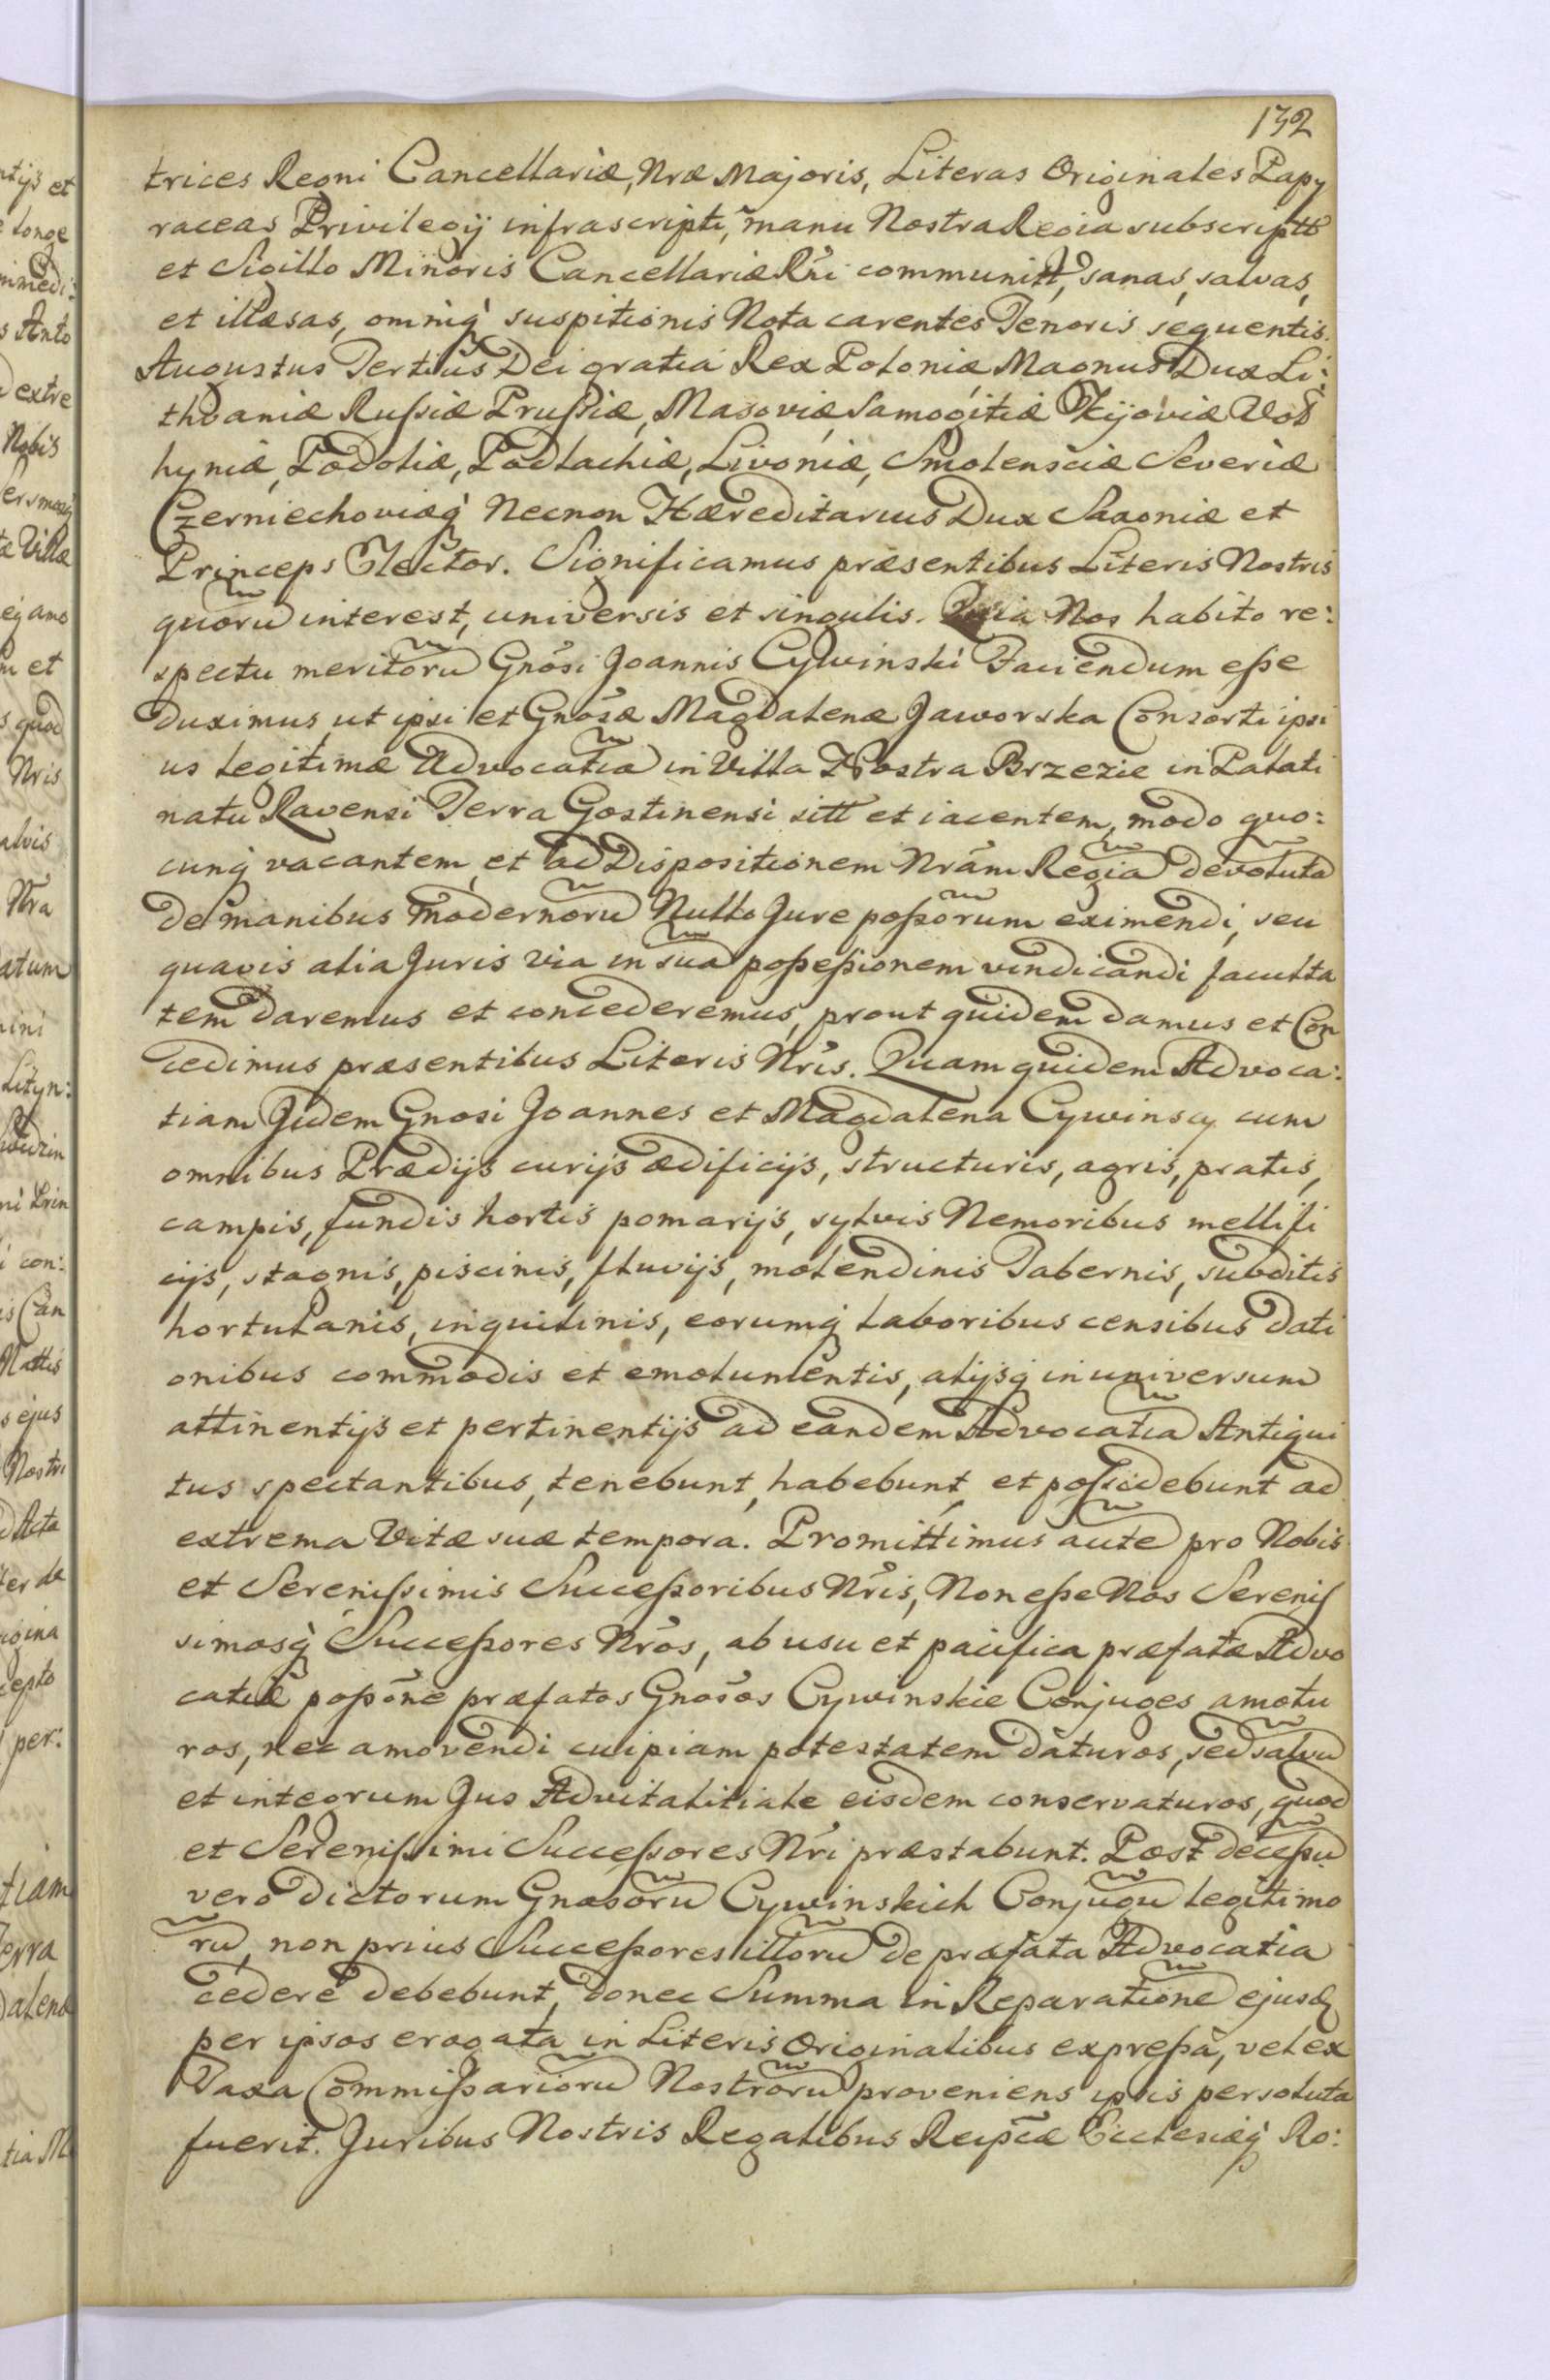 132
trices Regni Cancellariæ, Nræ Majoris, Literas Originales Papy
raceas Privilegij infrascripti, manu Nostra Regia subscriptt
et Sigillo Minoris Cancellariæ Rñi communitt, sanas, salvas,
et illæsas, omniq́ suspitionis Nota carentes Tenoris sequentis.
Augustus Tertius Dei gratia Rex Poloniæ Magnus Dux Li:
thvaniæ Rußiæ Prußiæ, Masoviæ Samogitiæ Kijoviæ Vol
hyniæ, Podoliæ, Podlachiæ, Livoniæ, Smolensciæ Severiæ
Czerniechoviæq́ Necnon Hæreditarius Dux Saxoniæ et
Princeps Elector. Significamus præsentibus Literis Nostris
quorũ interest, universis et singulis. Quia Nos habito re:
spectu meritorũ Gnõsi Joannis Cywinski Faciendum eße
duximus, ut ipsi et Gnõsæ Magdalenæ Jaworska Consorti ipsi
us legitimæ Advocatiã in Villa Nostra Brzezie in Palati
natu Ravensi Terra Gostinensi sitt et iacentem, modo quo:
cunq́ vacantem, et ad Dispositionem Nrãm Regiã devolutã
de manibus modernorũ Nullo Jure poßõrum eximendi, seu
quavis alia Juris via in suã poßeßionem vindicandi faculta
tem daremus et concederemus, prout quidem damus et Con
cedimus præsentibus Literis Nris. Quam quidem Advoca:
tiam Jidem Gnosi Joannes et Magdalena Cywinscy cum
omnibus Prædijs curijs ædificijs, structuris, agris, pratis,
campis, fundis hortis pomarijs, sylvis Nemoribus mellifi
cijs, stagnis, piscinis, fluvijs, molendinis Tabernis, subditis
hortulanis, inquilinis, eorumq́ laboribus censibus dati
onibus commodis et emolumentis, alijsq́ in universum
attinentijs et pertinentijs ad eandem Advocatiã Antiqui
tus spectantibus, tenebunt, habebunt, et possidebunt ad
extrema Vitæ suæ tempora. Promittimus autẽ pro Nobis
et Serenißimis Succeßoribus Nris, Non eße Nos Serenis
simosq́ Succeßores Nros, ab usu et pacifica præfatæ Advo
catiæ poßõne præfatos Gnosos Cywinskie Conjuges amotu
ros, nec amovendi cuipiam potestatem daturos, sed salvũ
et integrum Jus Advitalitiale eisdem conservaturos, quod
et Sereníßimi Succeßores Nri præstabunt. Post deceßũ
vero dictorum Gnosorũ Cywinskich Conjugũ legitimo
rũ, non prius Succeßores illorũ de præfata Advocatia
cedere debebunt, donec Summa in Reparationẽ ejusq
per ipsos erogata in Literis Originalibus expreßa, vel ex
Taxa Commißariorũ Nostrorũ proveniens ipsis persoluta
fuerit. Juribus Nostris Regalibus Reipcæ Ecclesiæq́ Ro: